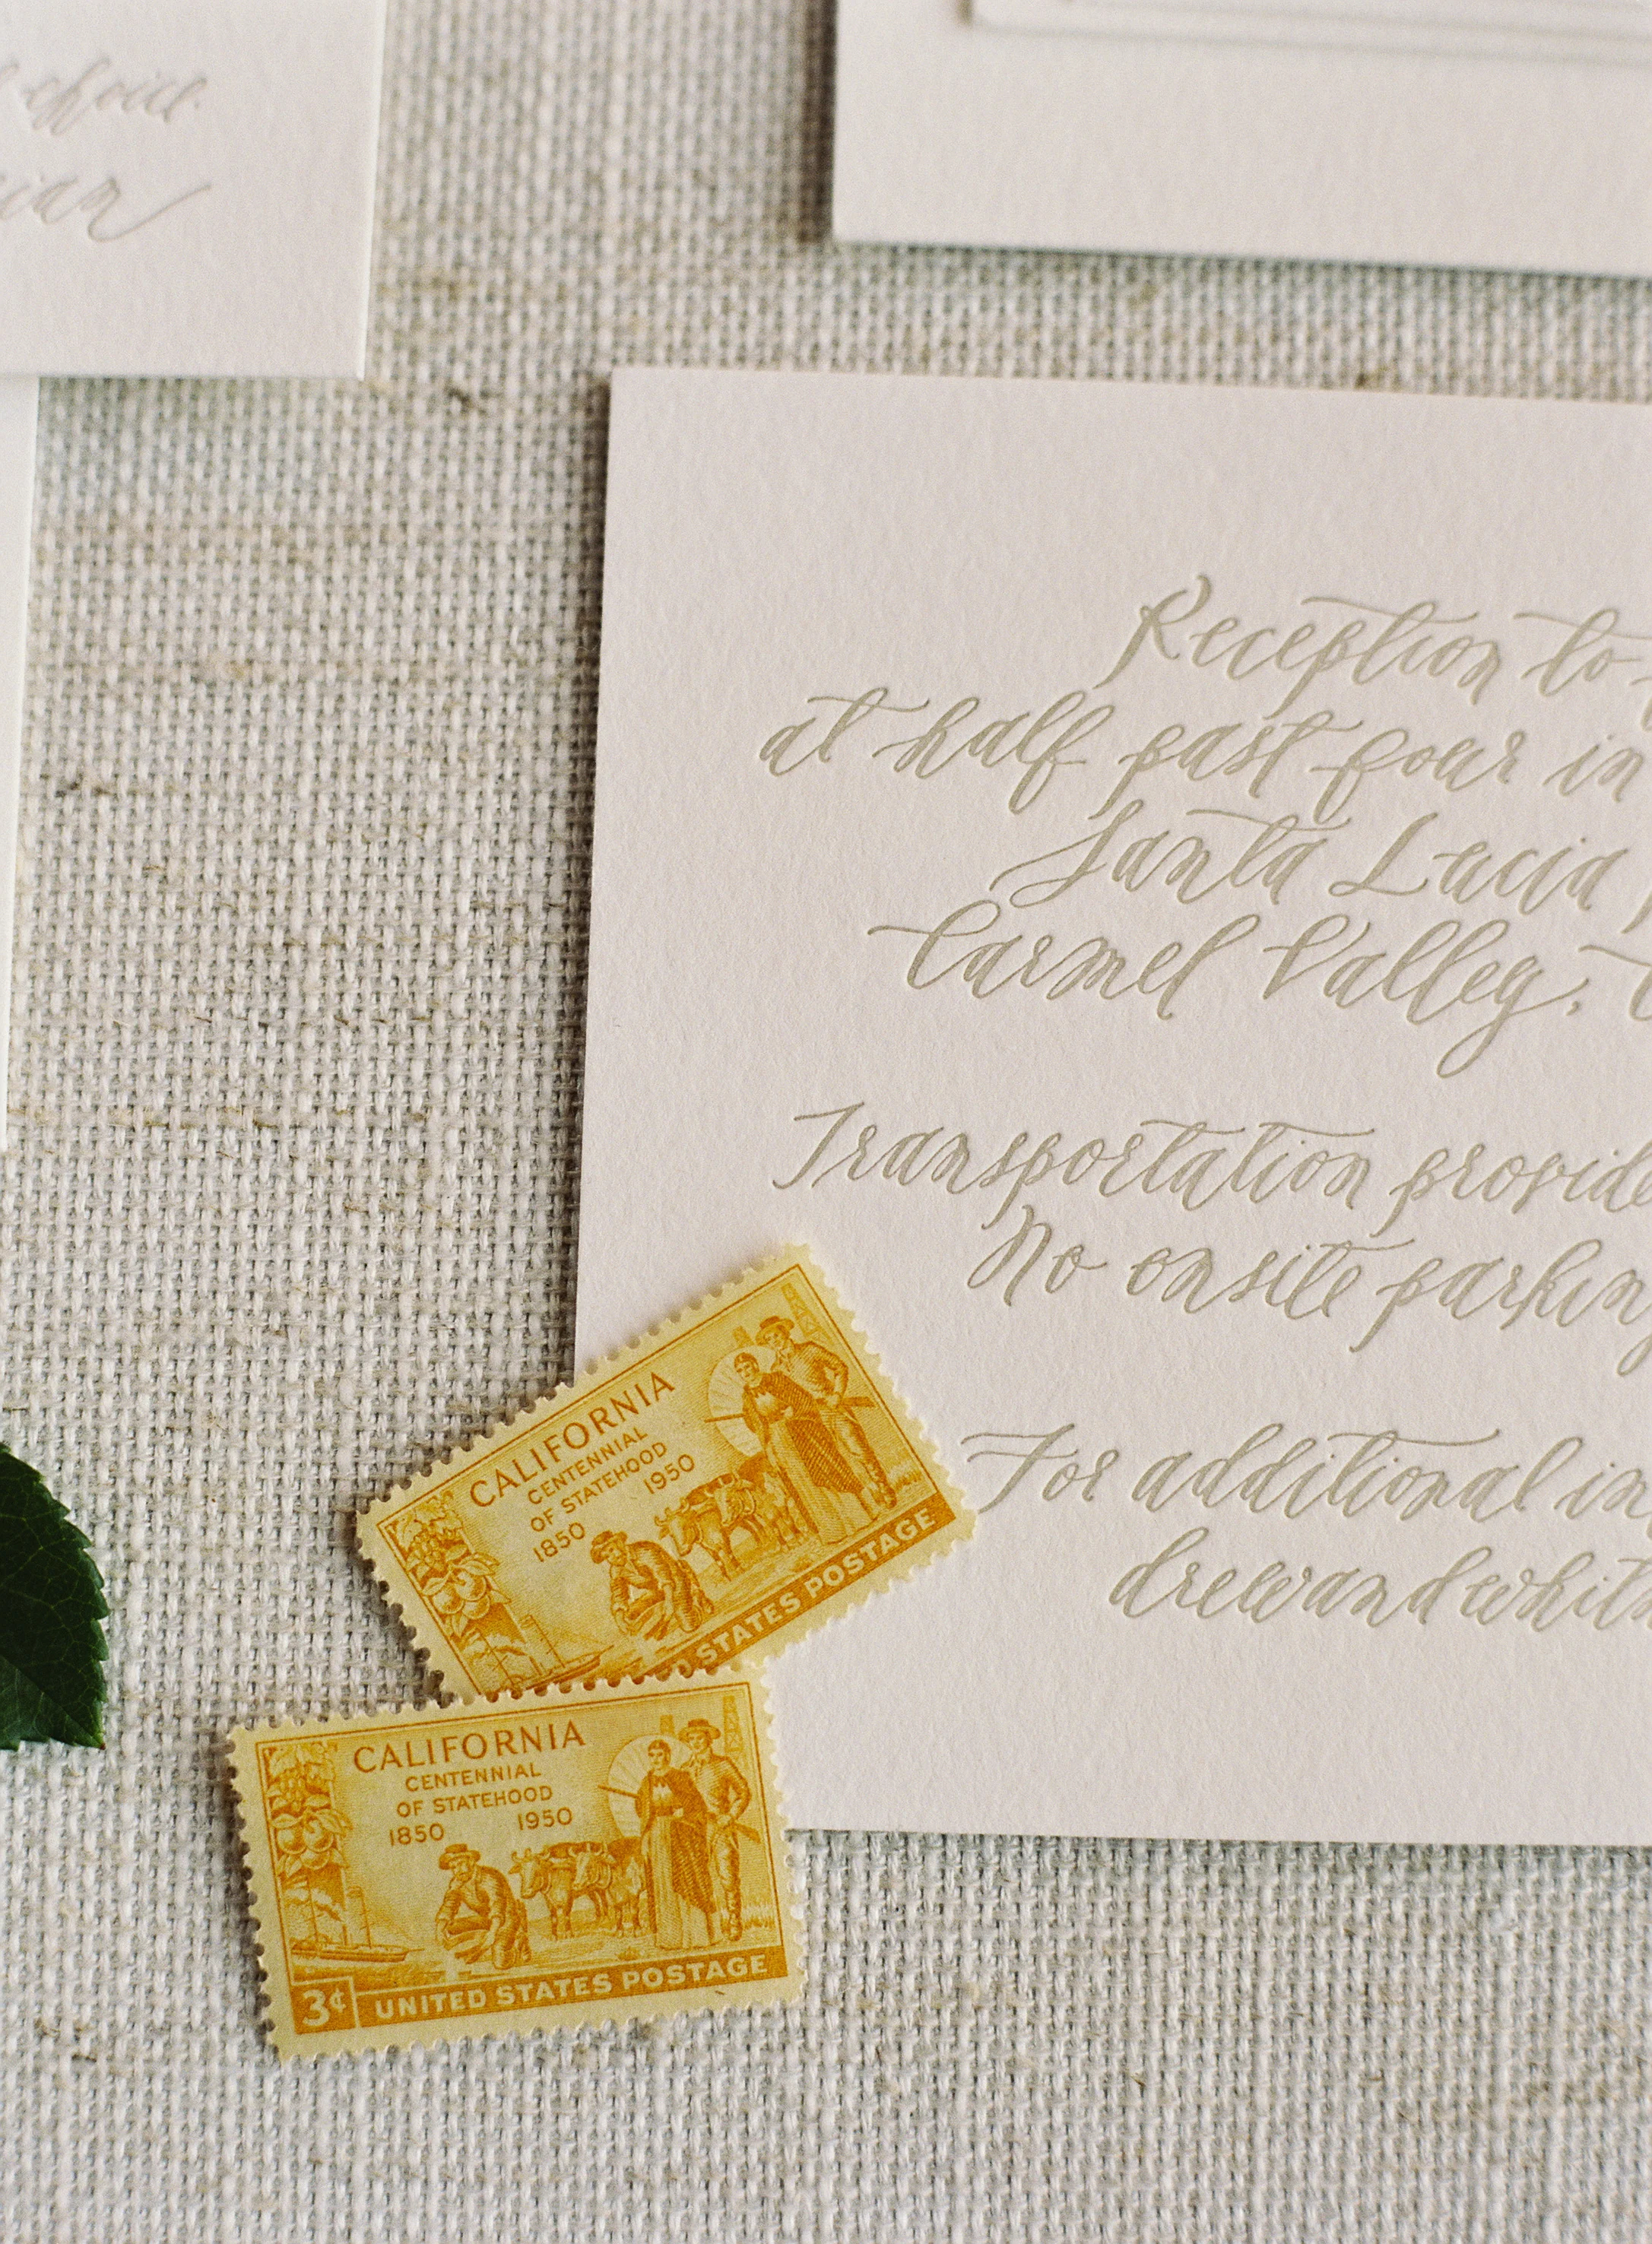 choice
Reception to
at half past four in
Santa Lucia
Carmel Valley,
Transportation
No onsite
For additional
CALIFORNIA
CENTENNIAL
OF STATEHOOD
1850 1950
STATES POSTAGE
CALIFORNIA
CENTENNIAL
OF STATEHOOD
1850 1950
3¢ UNITED STATES POSTAGE